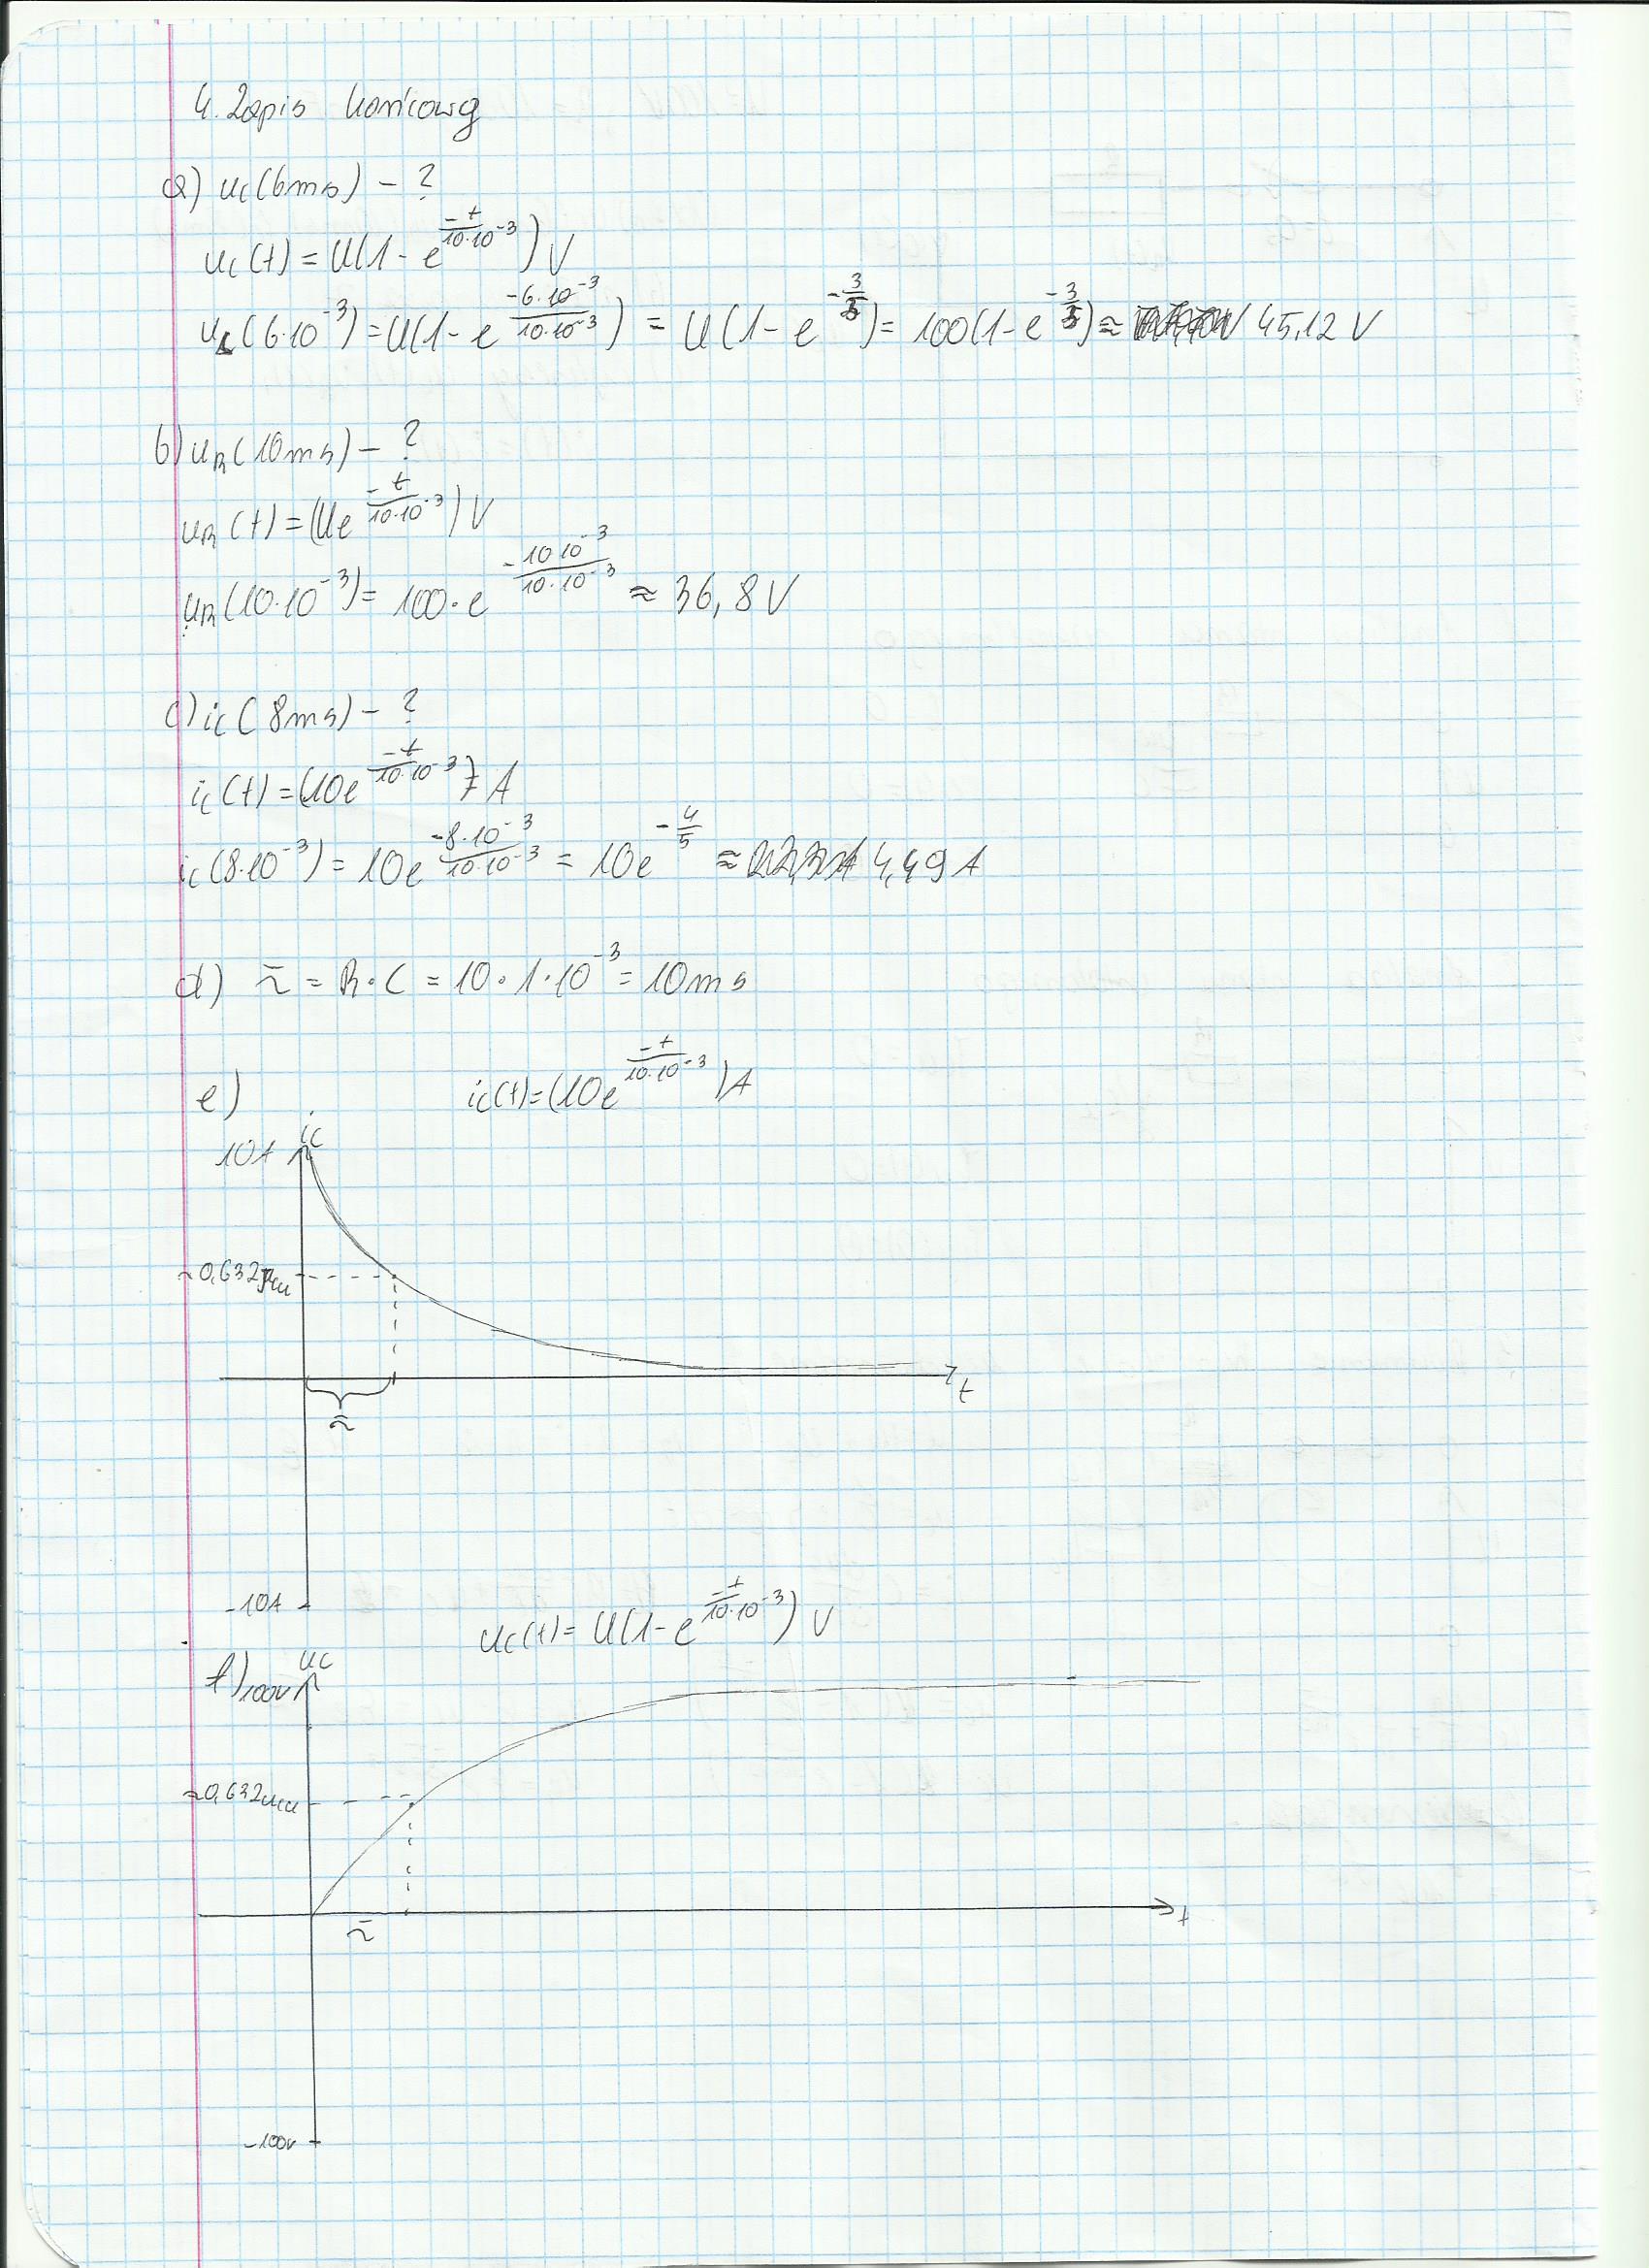 4. Zapis końcowy
a) uc(6ms) - ?
uc(t) = U(1 - e^(-t/(10·10^-3))) V
uc(6·10^-3) = U(1 - e^(-6·10^-3/(10·10^-3))) = U(1 - e^(-3/5)) = 100(1 - e^(-3/5)) ≈ 45,12 V
b) uR(10ms) - ?
uR(t) = (Ue^(-t/(10·10^-3))) V
uR(10·10^-3) = 100·e^(-10·10^-3/(10·10^-3)) ≈ 36,8 V
c) ic(8ms) - ?
ic(t) = (10e^(-t/(10·10^-3))) A
ic(8·10^-3) = 10e^(-8·10^-3/(10·10^-3)) = 10e^(-4/5) ≈ 4,49 A
d) τ = R·C = 10·1·10^-3 = 10ms
e) ic(t) = (10e^(-t/(10·10^-3))) A
ic
10A
~0,632
t
τ
-10A
uc(t) = U(1 - e^(-t/(10·10^-3))) V
f) uc
100V
≈0,632ucu
t
τ
-100V